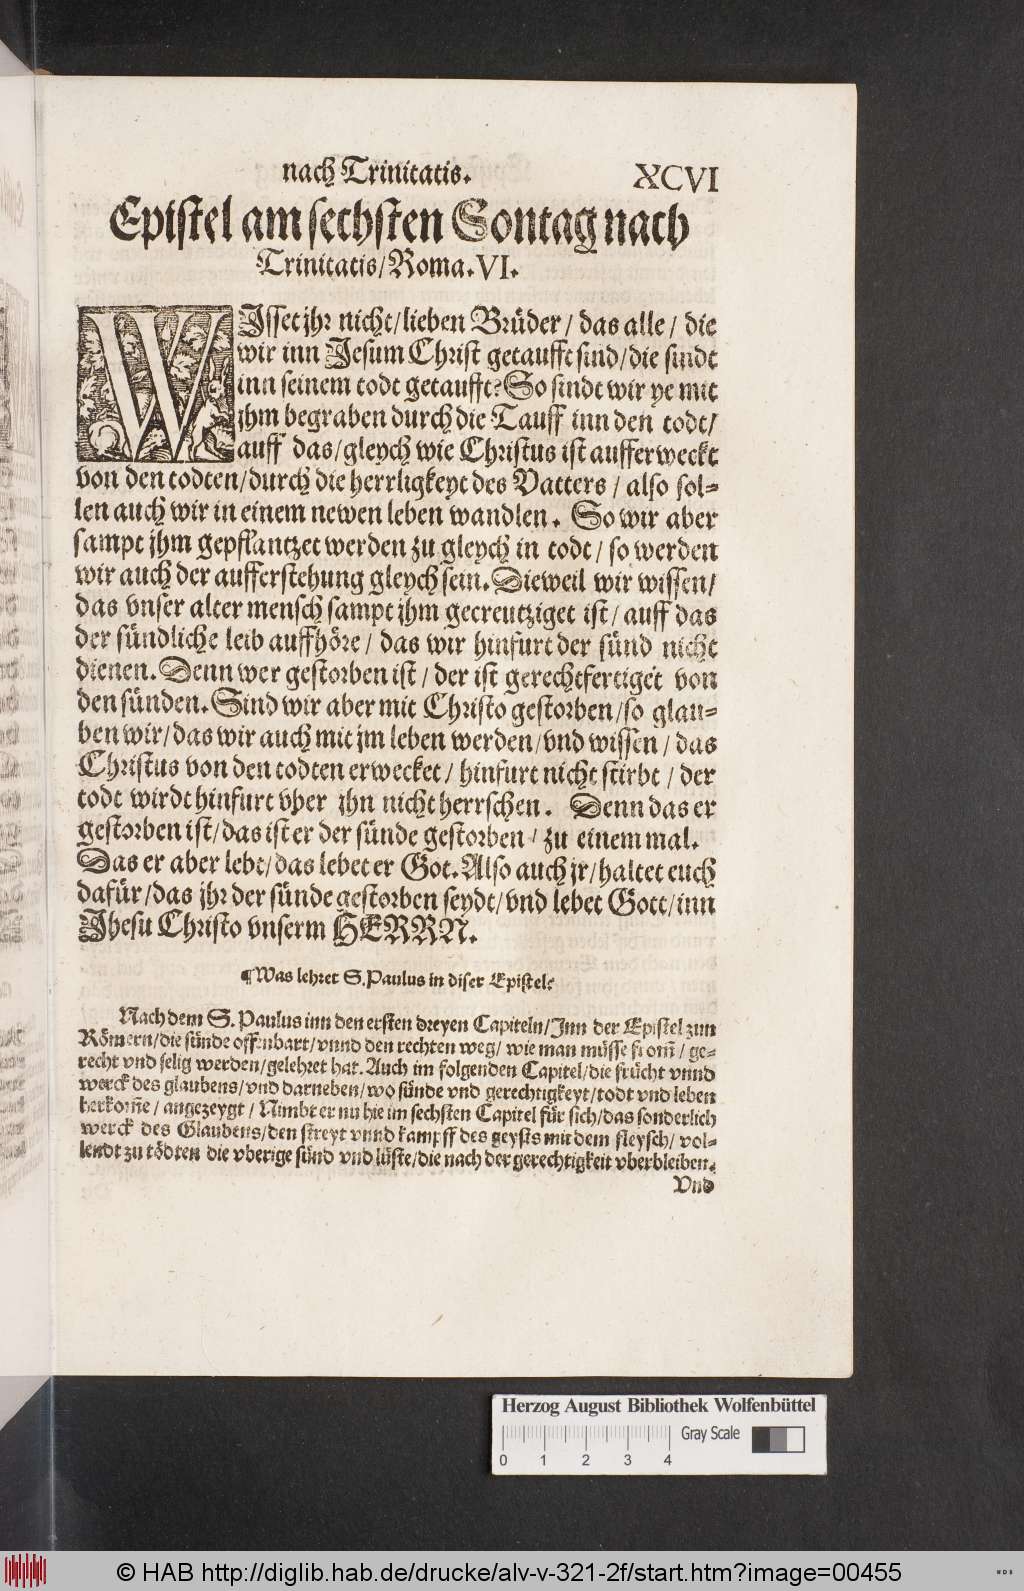 nach Trinitatis.
XCVI
Epistel am sechsten Sontag nach
Trinitatis/ Roma. VI.
WJsset jhr nicht/ lieben Brüder/ das alle/ die
wir inn Jesum Christ getaufft sind/ die sindt
inn seinem todt getaufft? So sindt wir ye mit
jhm begraben durch die Tauff inn den todt/
auff das/ gleych wie Christus ist aufferweckt
von den todten/ durch die herrligkeyt des Vatters/ also sol-
len auch wir in einem newen leben wandlen. So wir aber
sampt jhm gepflantzet werden zu gleych in todt/ so werden
wir auch der aufferstehung gleych sein. Dieweil wir wissen/
das vnser alter mensch sampt jhm gecreutziget ist/ auff das
der sündliche leib auffhöre/ das wir hinfurt der sünd nicht
dienen. Denn wer gestorben ist/ der ist gerechtfertiget von
den sünden. Sind wir aber mit Christo gestorben/ so glau-
ben wir/ das wir auch mit jm leben werden/ vnd wissen/ das
Christus von den todten erwecket/ hinfurt nicht stirbt/ der
todt wirdt hinfurt vber jhn nicht herrschen. Denn das er
gestorben ist/ das ist er der sünde gestorben/ zu einem mal.
Das er aber lebt/ das lebet er Got. Also auch jr/ haltet euch
dafür/ das jhr der sünde gestorben seydt/ vnd lebet Gott/ inn
Jhesu Christo vnserm HERRN.
¶ Was lehret S. Paulus in diser Epistel?
Nach dem S. Paulus inn den ersten dreyen Capiteln/ Jnn der Epistel zun
Römern/ die sünde offenbart/ vnnd den rechten weg/ wie man müsse from̃/ ge-
recht vnd selig werden/ gelehret hat. Auch im folgenden Capitel/ die frücht vnnd
werck des glaubens/ vnd darneben/ wo sünde vnd gerechtigkeyt/ todt vnd leben
herkom̃e/ angezeygt/ Nimbt er nu hie im sechsten Capitel für sich/ das sonderlich
werck des Glaubens/ den streyt vnnd kampff des geysts mit dem fleysch/ vol-
lendt zu tödten die vberige sünd vnd lüste/ die nach der gerechtigkeit vberbleiben.
Vnd
Herzog August Bibliothek Wolfenbüttel
Gray Scale
0 1 2 3 4
© HAB http://diglib.hab.de/drucke/alv-v-321-2f/start.htm?image=00455